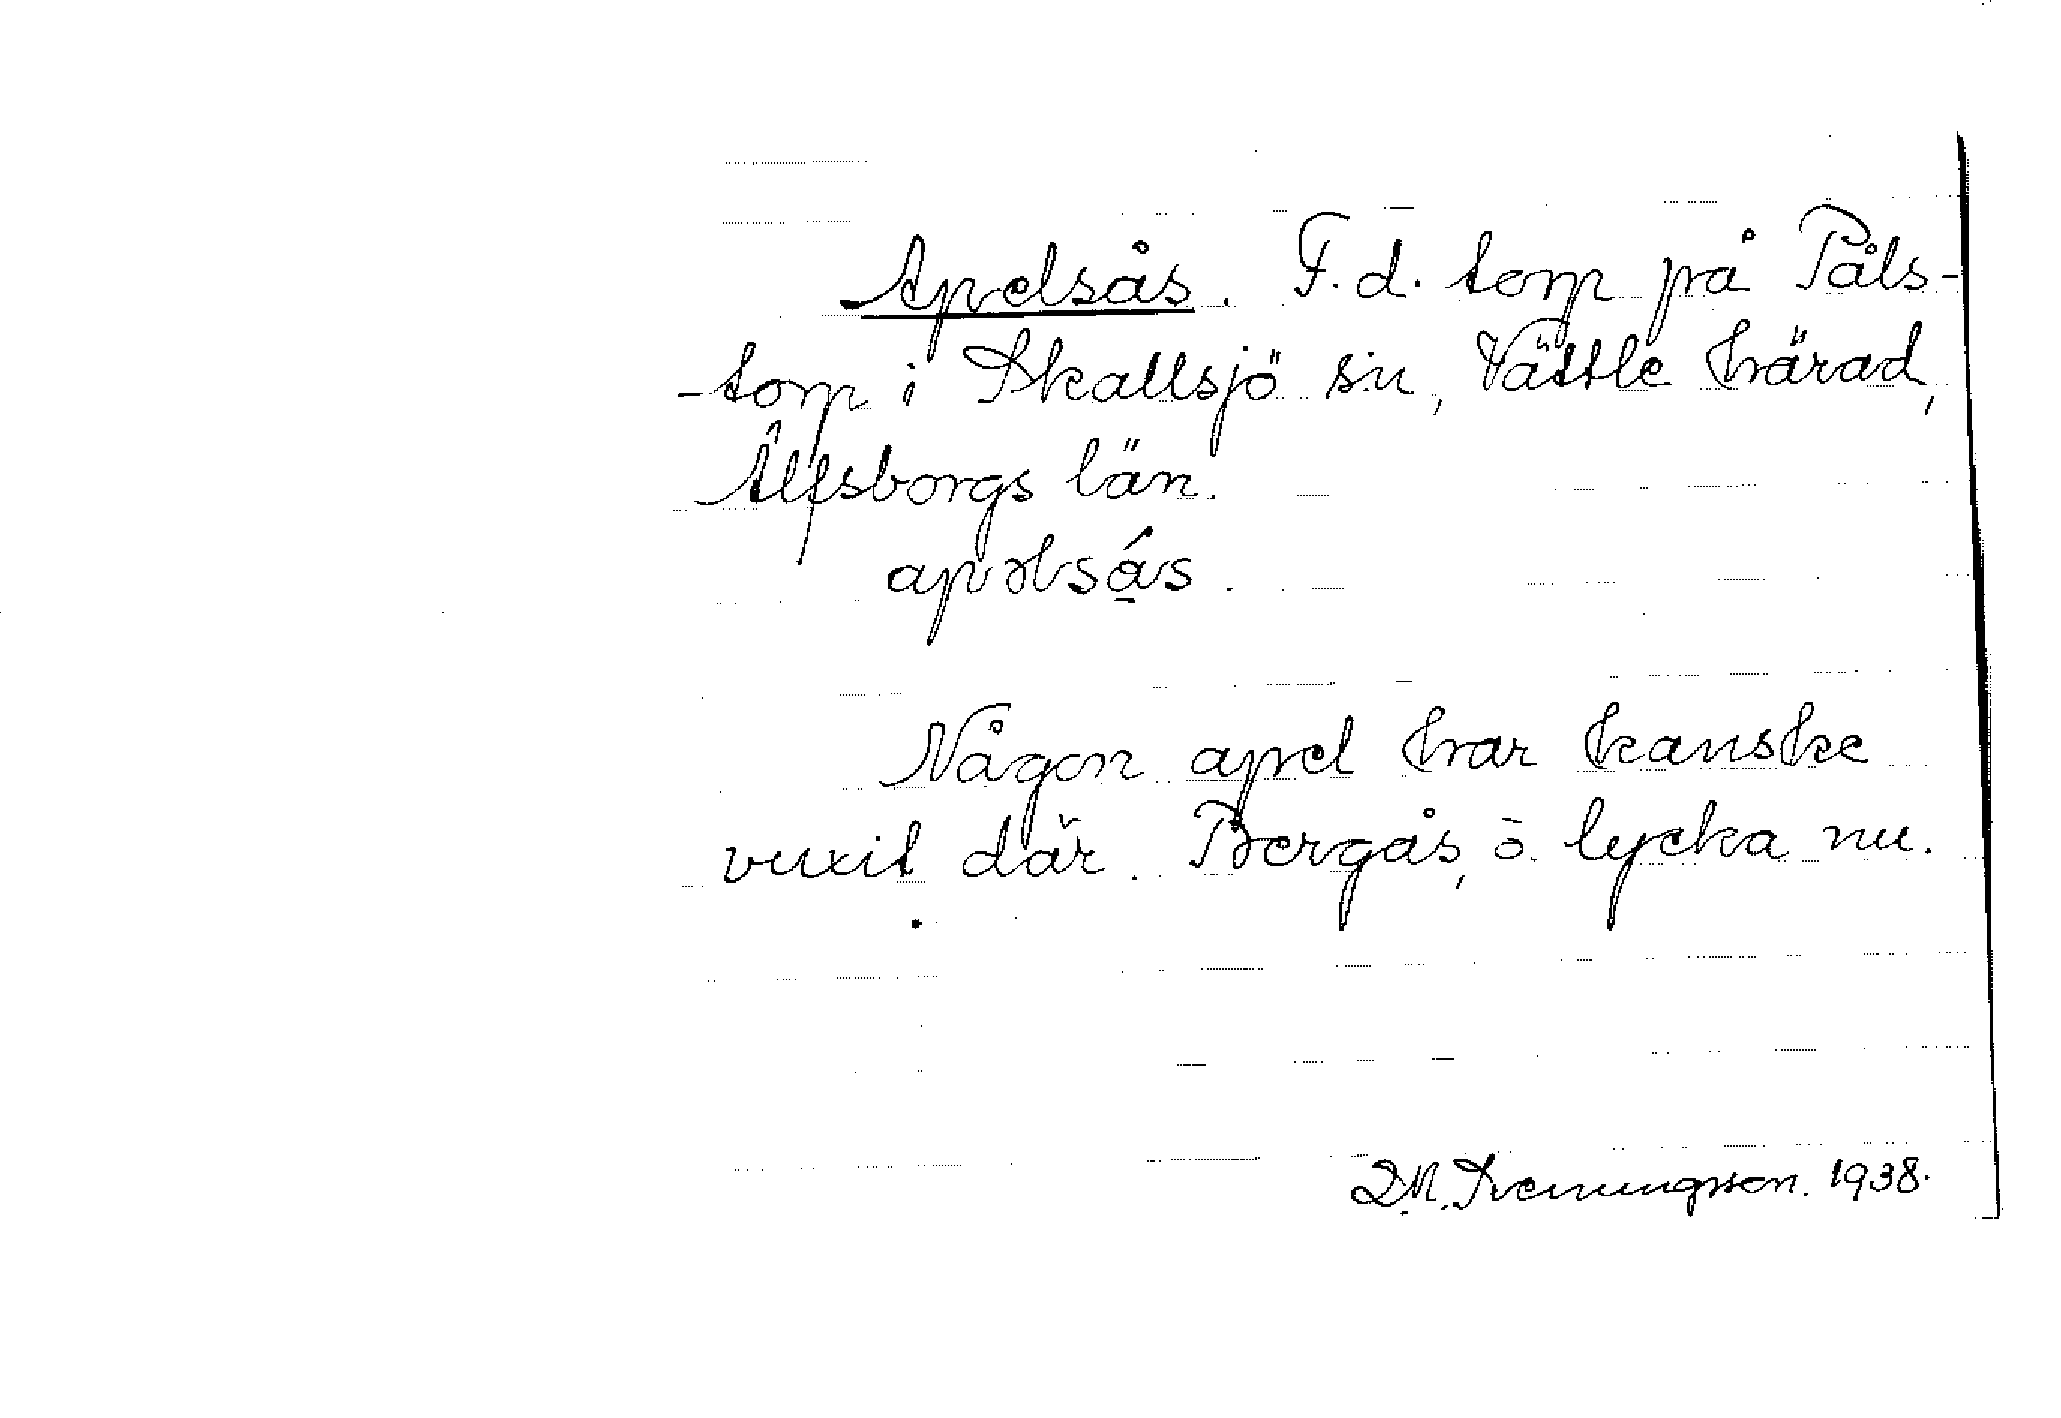 Apelsås. F.d. torp på Påls-
-torp i Skallsjö sn, Vättle härad,
Älfsborgs län.
Någon apel har kanske
vuxit där. Bergås, o. lycka nu.
D.N. Svenungsson. 1938.